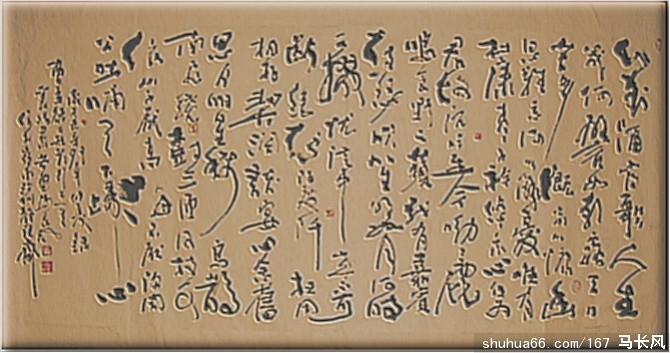 对酒當歌人生
幾何譬如朝露去日
苦多慨當以慷幽
思難忘何以解憂唯有
杜康青青子衿悠悠我心但为
君故沉吟至今呦呦鹿
鳴食野之蘋我有嘉賓
鼓瑟吹笙明明如月何時
可掇憂從中來不可
斷絕越陌度阡枉用
相存契闊談宴心念舊
恩月明星稀烏鵲
南飛繞树三匝何枝可
依山不厭高海不厭深周
公吐哺天下歸心
shuhua66.com/167 马长风